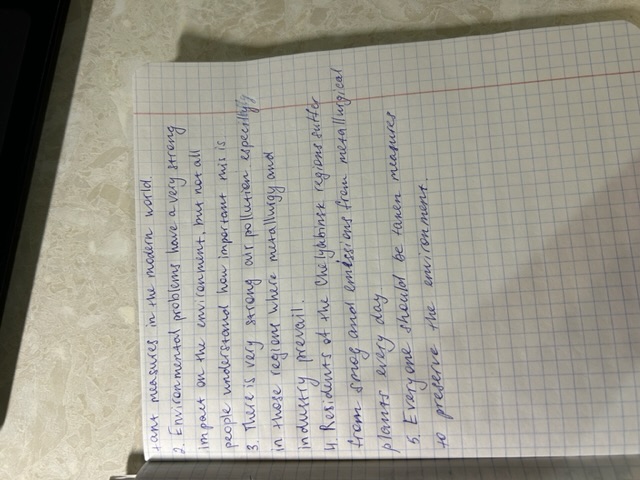 tant measures in the modern world.
2. Environmental problems have a very strong
impact on the environment, but not all
people understand how important this is
3. There is very strong air pollution especially
in those regions where metallurgy and
industry prevail.
4. Residents of the Chelyabinsk regions suffer
from smog and emissions from metallurgical
plants every day
5. Everyone should be taken measures
to preserve the environment.